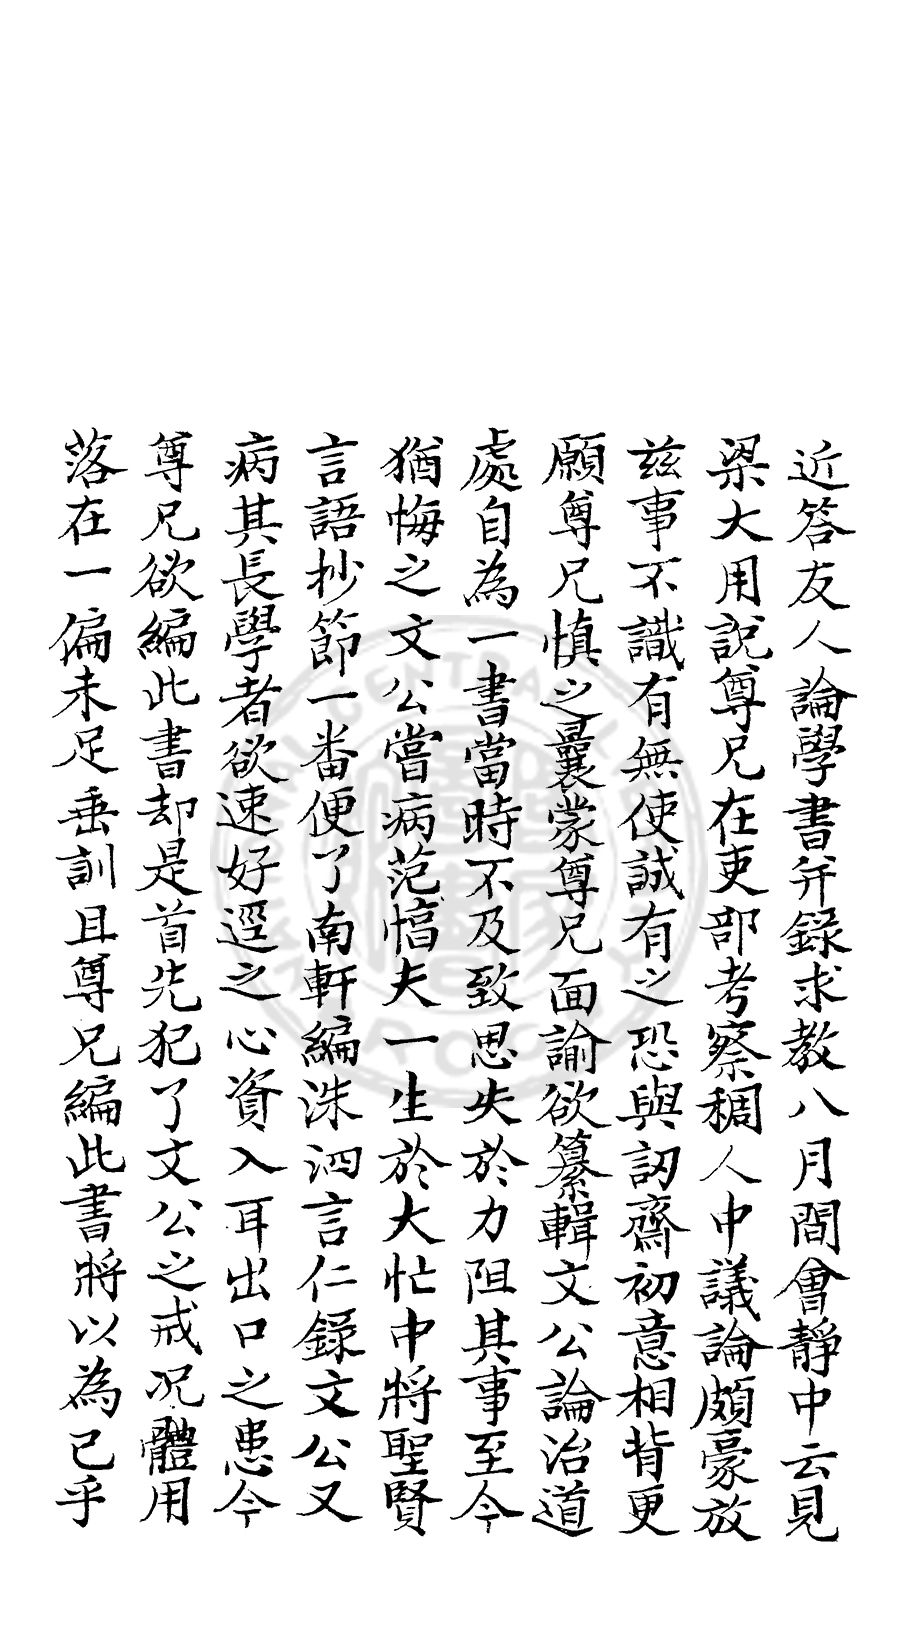 近答友人論學書并錄求教八月間會靜中云見
梁大用說尊兄在吏部考察稠人中議論頗豪放
茲事不識有無使誠有之恐與訒齋初意相背更
願尊兄慎之曩蒙尊兄面諭欲纂輯文公論治道
處自為一書當時不及致思失於力阻其事至今
猶悔之文公嘗病范愊夫一生於大忙中將聖賢
言語抄節一番便了南軒編洙泗言仁錄文公又
病其長學者欲速好逕之心資入耳出口之患今
尊兄欲編此書却是首先犯了文公之戒况體用
落在一偏未足垂訓且尊兄編此書將以為己乎
NATIONAL CENTRAL LIBRARY